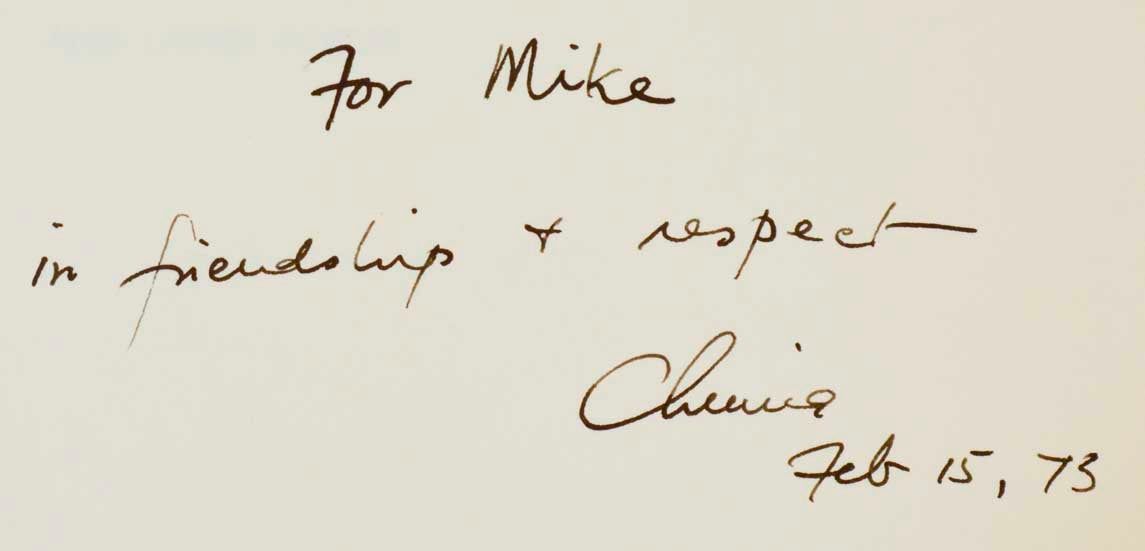 For Mike
in friendship + respect
Feb 15, 73